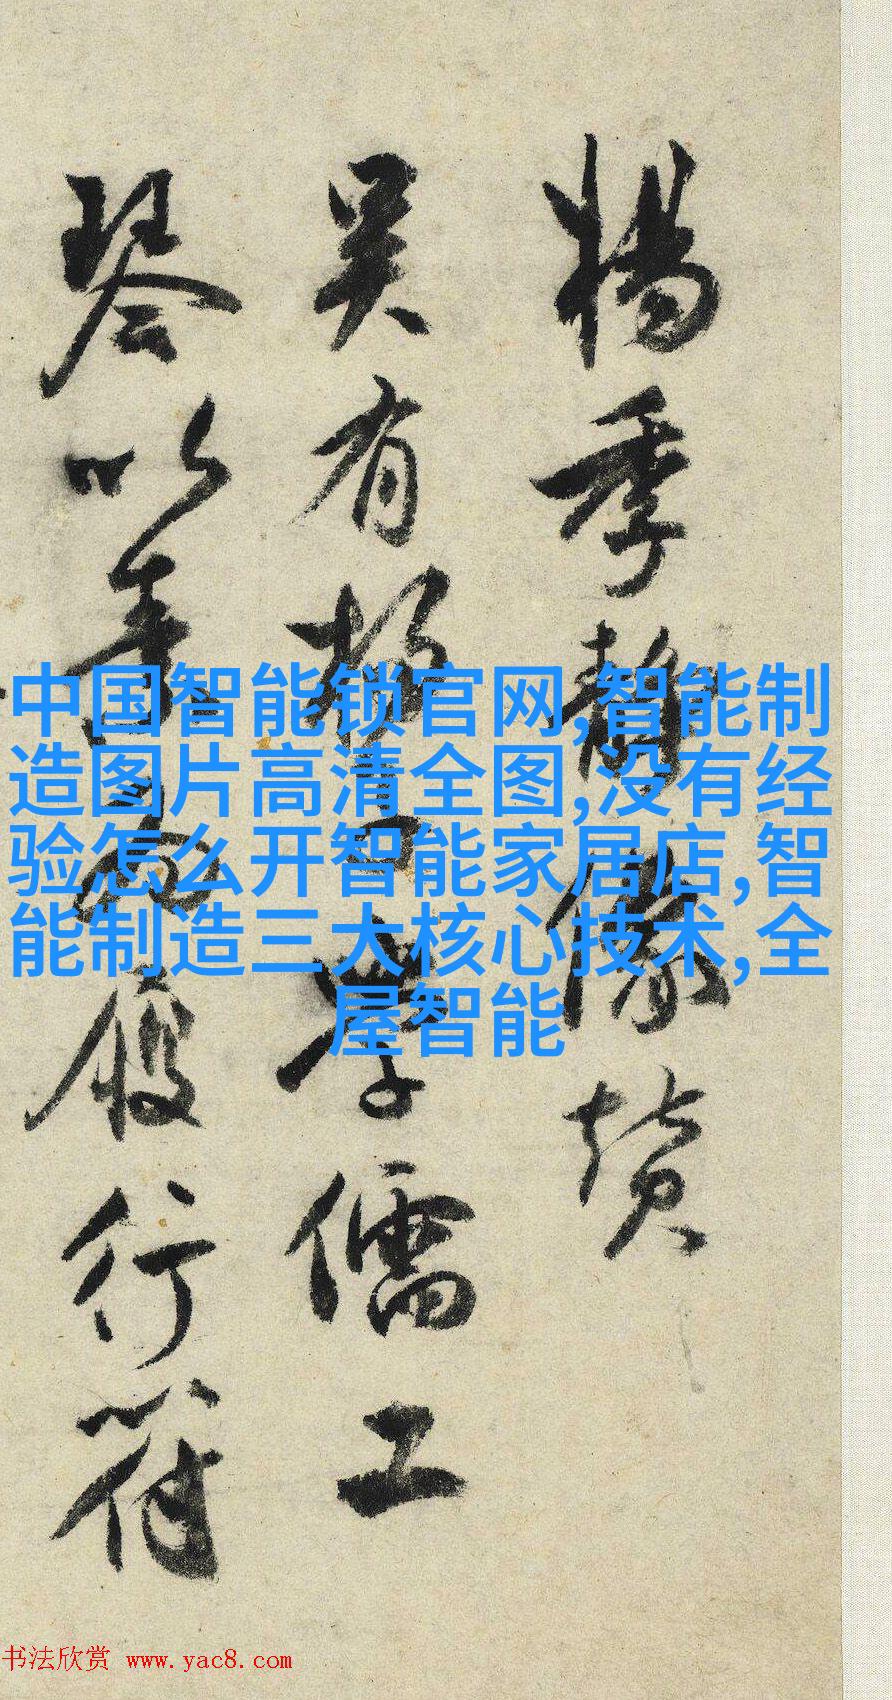 楊季静像赞
吴有佳士學儒工
琴以善鳴履行符
中国智能锁官网,智能制
造图片高清全图,没有经
验怎么开智能家居店,智
能制造三大核心技术,全
屋智能
书法欣赏 www.yac8.com